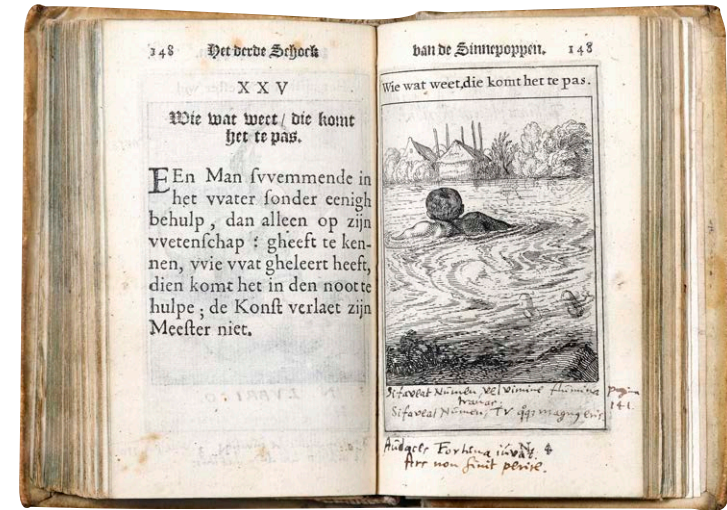 148 Het derde Schock
X X V
Wie wat weet / die komt
het te pas.
EEn Man ſvvemmende in
het vvater ſonder eenigh
behulp, dan alleen op zijn
vvetenſchap : gheeft te ken-
nen, vvie vvat gheleert heeft,
dien komt het in den noot te
hulpe ; de Konſt verlaet zijn
Meeſter niet.
van de Sinnepoppen. 148
Wie wat weet, die komt het te pas.
Si faveat Numen, vel vimine flumina
tranas.
Si faveat Numen, Tu magnus eris
pagina
141.
Audaces Fortuna iuvat.
Ars non sinit perire.